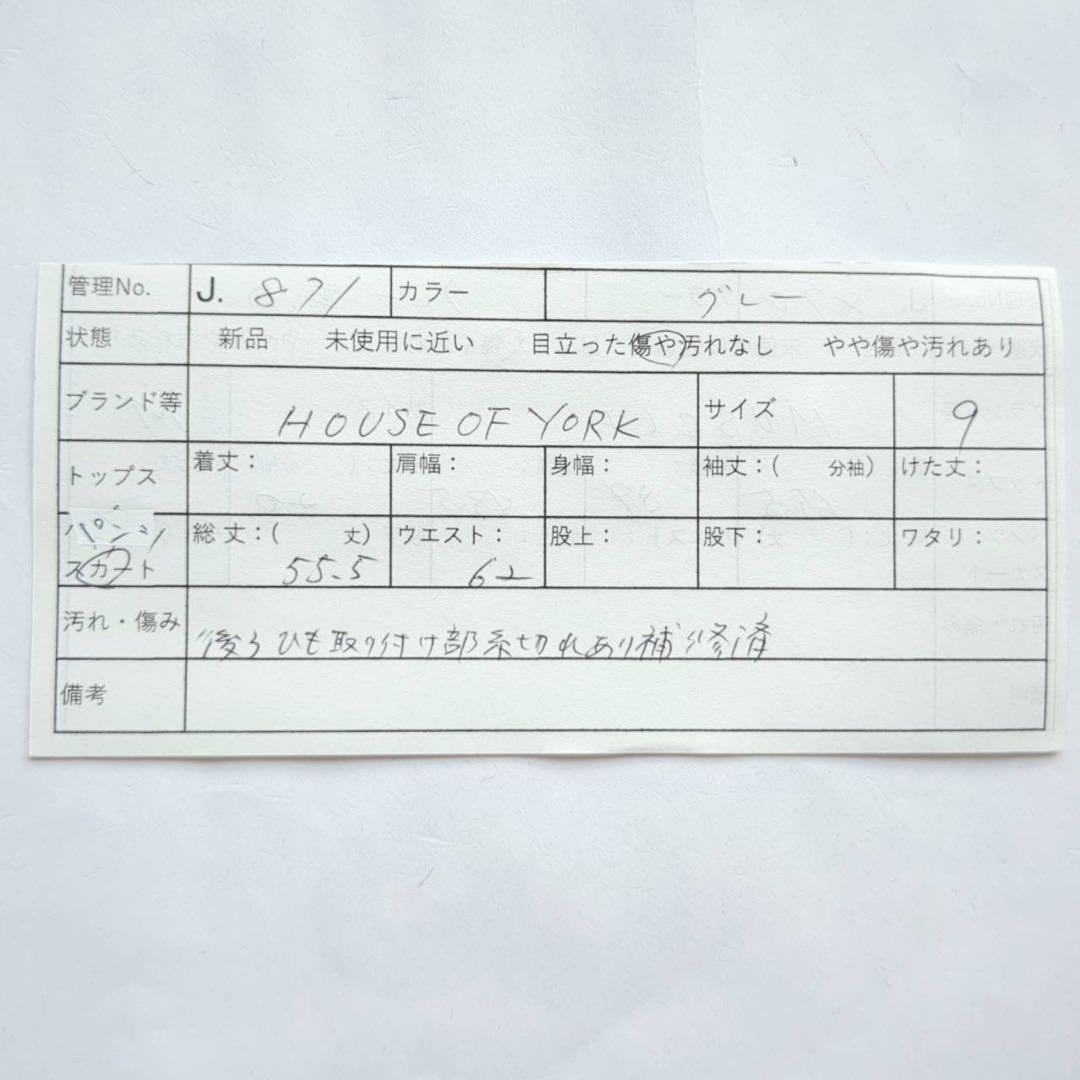 管理No. J. 871 カラー グレー
状態 新品 未使用に近い 目立った傷や汚れなし やや傷や汚れあり
ブランド等 HOUSE OF YORK サイズ 9
トップス 着丈： 肩幅： 身幅： 袖丈：( 分袖) けた丈：
パンツ 総丈：( 丈) ウエスト： 股上： 股下： ワタリ：
スカート 55.5 62
汚れ・傷み 後ろひも取り付け部糸切れあり補修済
備考